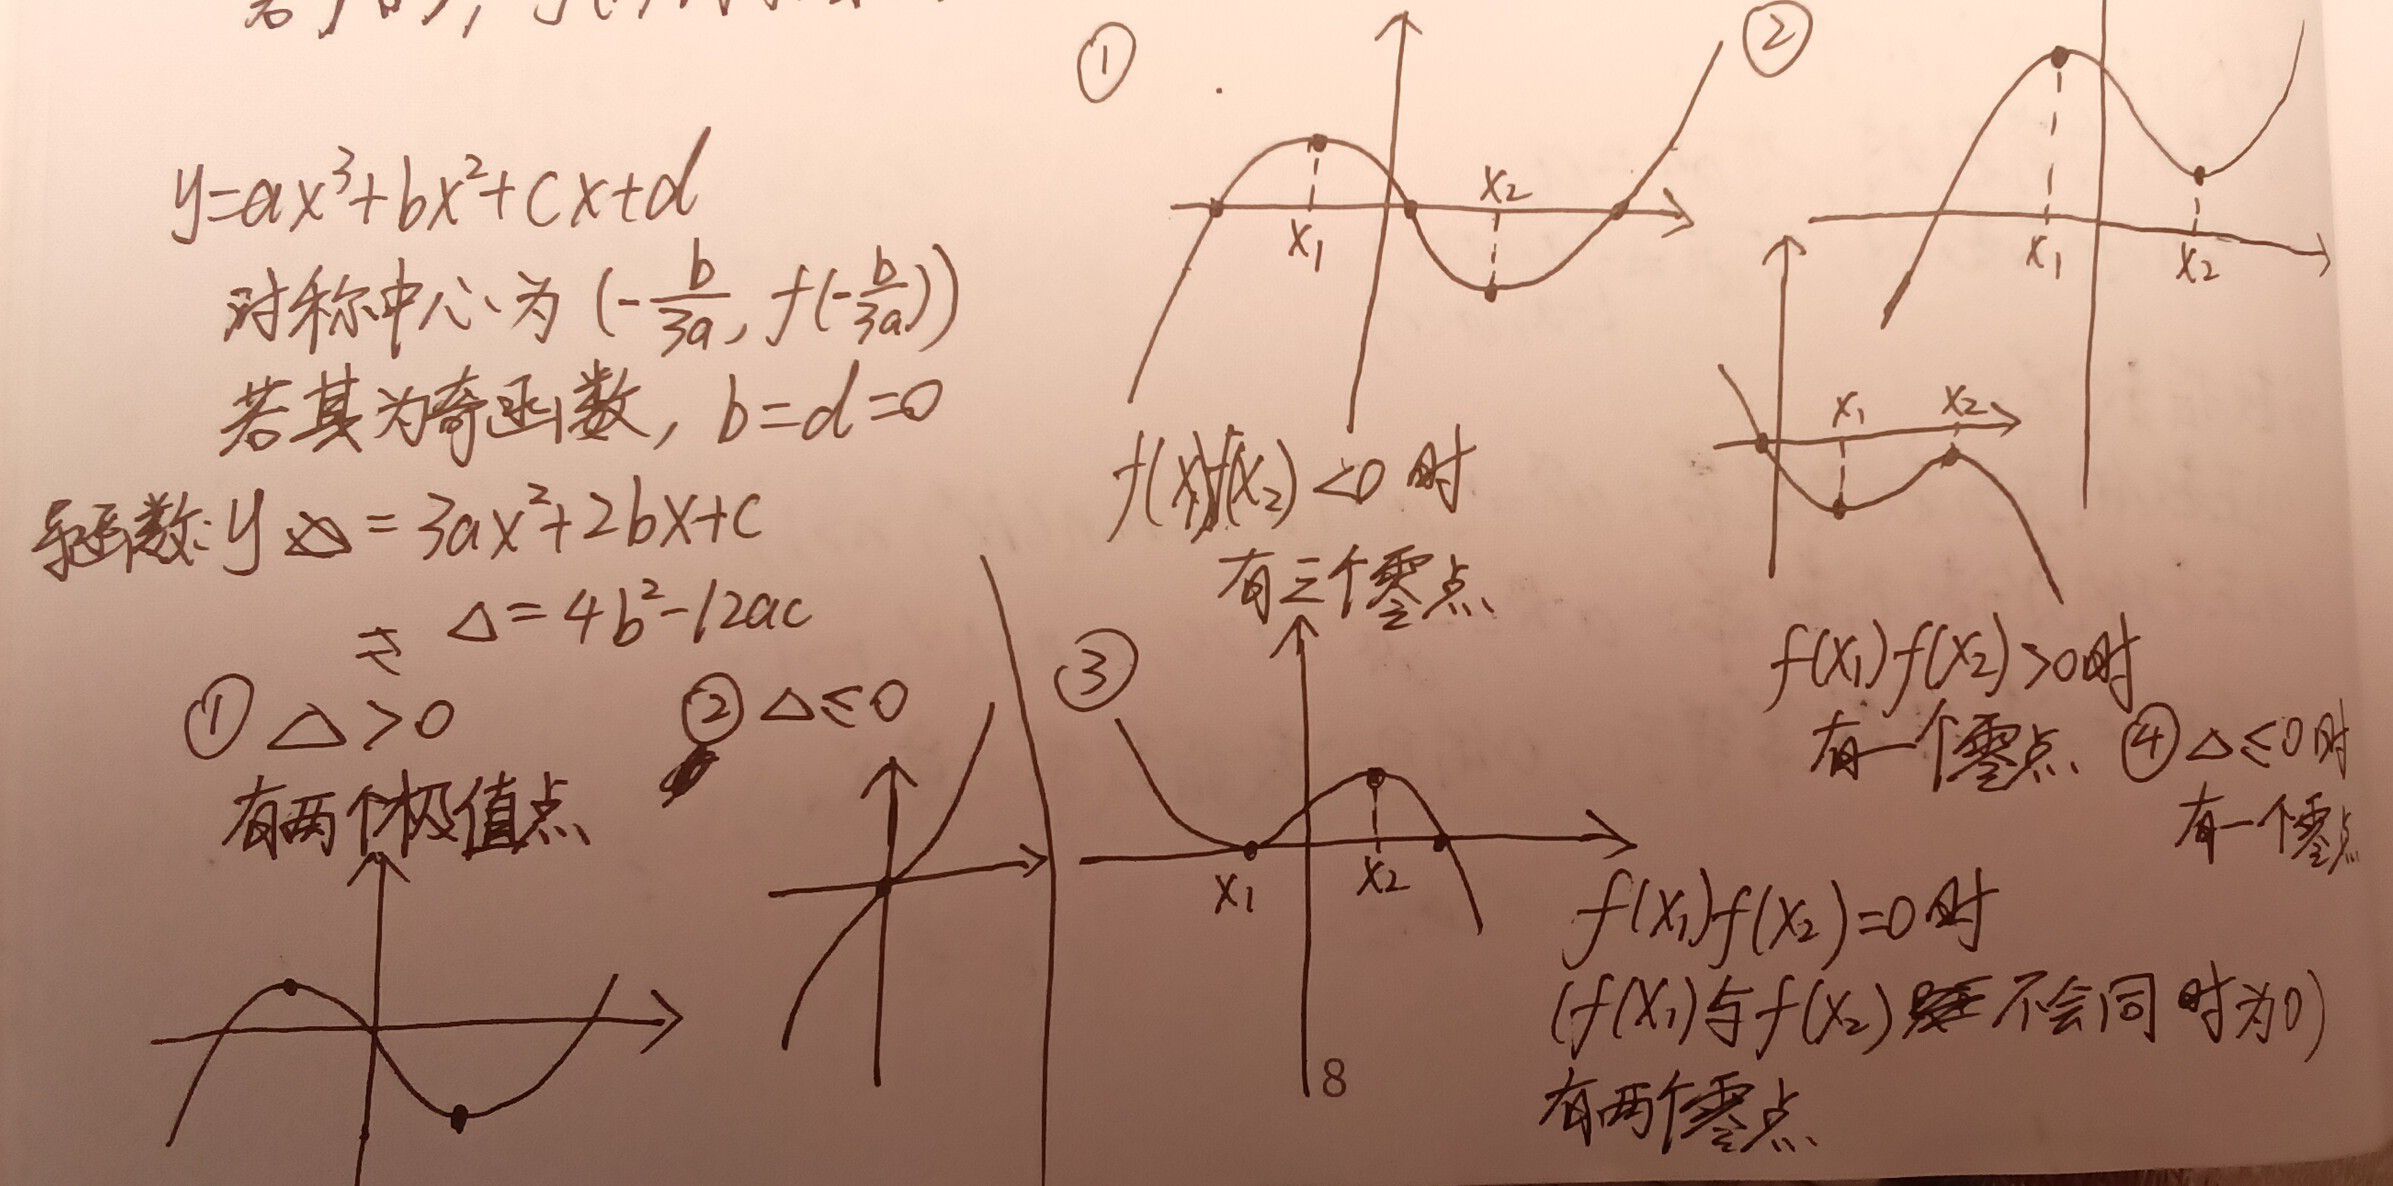 y=ax³+bx²+cx+d
对称中心为 (-b/3a, f(-b/3a))
若其为奇函数, b=d=0
导函数: y = 3ax²+2bx+c
Δ=4b²-12ac
① Δ>0
有两个极值点
② Δ≤0
①
x₁
x₂
f(x₁)f(x₂)<0时
有三个零点
②
x₁
x₂
x₁
x₂
f(x₁)f(x₂)>0时
有一个零点
③
x₁
x₂
f(x₁)f(x₂)=0时
(f(x₁)与f(x₂)不会同时为0)
有两个零点
④ Δ≤0时
有一个零点
8